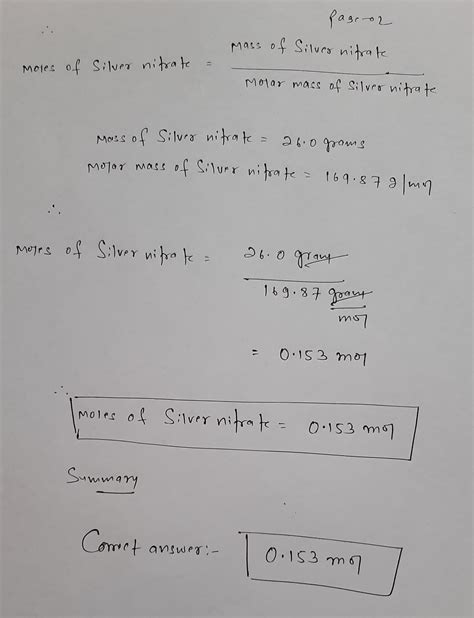 Page-02
∴
Moles of Silver nitrate = Mass of Silver nitrate
Molar mass of Silver nitrate
Mass of Silver nitrate = 26.0 grams
Molar mass of Silver nitrate = 169.87 g/mol
∴
Moles of Silver nitrate = 26.0 gram
169.87 gram
mol
= 0.153 mol
∴
Moles of Silver nitrate = 0.153 mol
Summary
Correct answer:-
0.153 mol